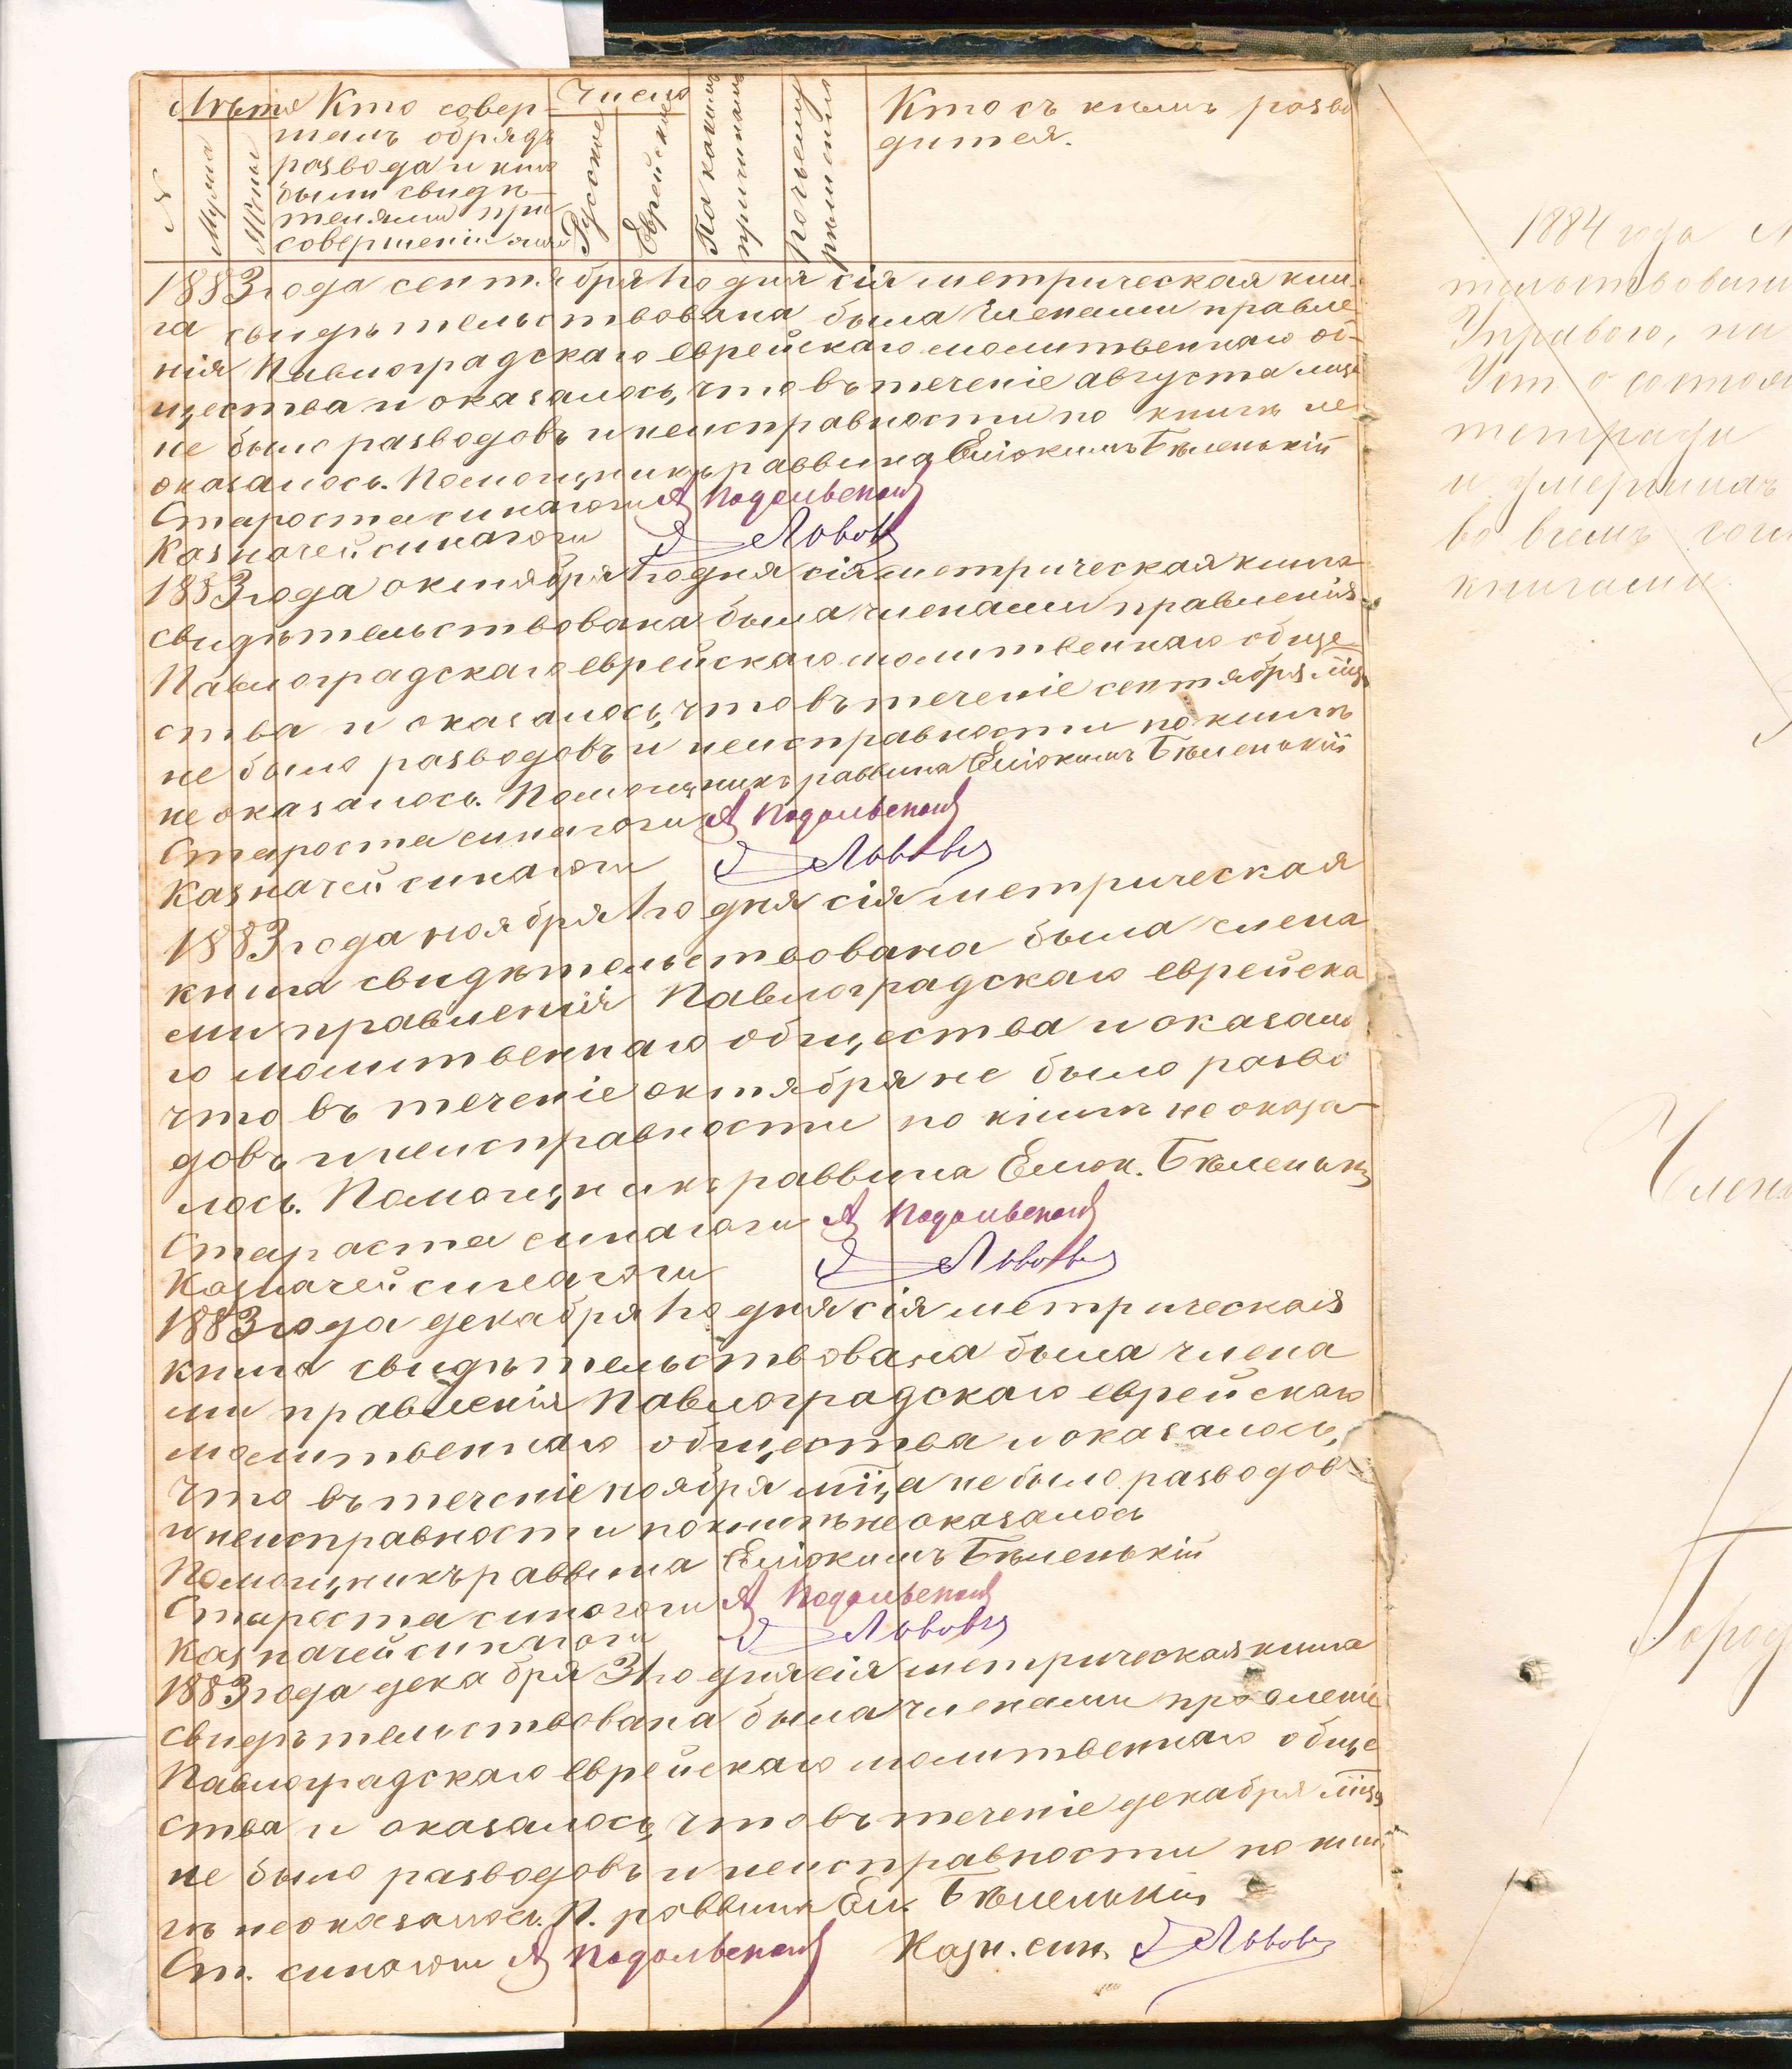 Лѣта Кто совер-
шалъ обрядъ
развода и кто
были свидѣ-
телями при
совершеніи
№
Мужа
Жены
Число
Русское
Еврейское
По какимъ
причинамъ
По чьему
рѣшенію
Кто съ кѣмъ разво
дится.
1883 года сентября 1го дня сія метрическая кни-
га свидѣтельствована была членами правле
нія Павлоградскаго еврейскаго молитвеннаго об-
щества и оказалось, что въ теченіе августа мца
не было разводовъ и неисправности по книгѣ не
оказалось. Помощникъ раввина Еліокимъ Бѣленькій
Староста синагоги А Подольскій
Казначей синагоги Львовъ
1883 года октября 1го дня сія метрическая книга
свидѣтельствована была членами правленія
Павлоградскаго еврейскаго молитвеннаго обще
ства и оказалось, что въ теченіе сентября мца
не было разводовъ и неисправности по книгѣ
не оказалось. Помощникъ раввина Еліокимъ Бѣленькій
Староста синагоги А Подольскій
Казначей синагоги Львовъ
1883 года ноября 1го дня сія метрическая
книга свидѣтельствована была члена
ми правленія Павлоградскаго еврейска
го молитвеннаго общества и оказало
что въ теченіе октября не было разво
довъ и неисправности по книгѣ не оказа-
лось. Помощникъ раввина Еліок. Бѣленькій
Староста синагоги А Подольскій
Казначей синагоги Львовъ
1883 года декабря 1го дня сія метрическая
книга свидѣтельствована была члена
ми правленія Павлоградскаго еврейскаго
молитвеннаго общества и оказалось,
что въ теченіе ноября мца не было разводовъ
и неисправности по книгѣ не оказалось
Помощникъ раввина Еліокимъ Бѣленькій
Староста синагоги А Подольскій
Казначей синагоги Львовъ
1883 года декабря 31го дня сія метрическая книга
свидѣтельствована была членами правленія
Павлоградскаго еврейскаго молитвеннаго обще
ства и оказалось, что въ теченіе декабря мца
не было разводовъ и неисправности по кни
гѣ не оказалось. П. раввина Ел. Бѣленькій
Ст. синагоги А Подольскій Казн. син. Львовъ
1884 года
Управою, на
о состоя
тетради
и умершихъ
во всемъ
книгами.
Члены
Город